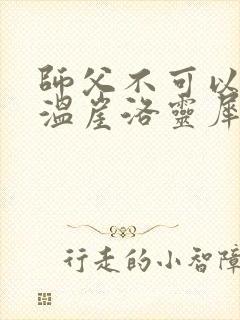 師父不可以
溫崖洛靈犀
行走的小智障